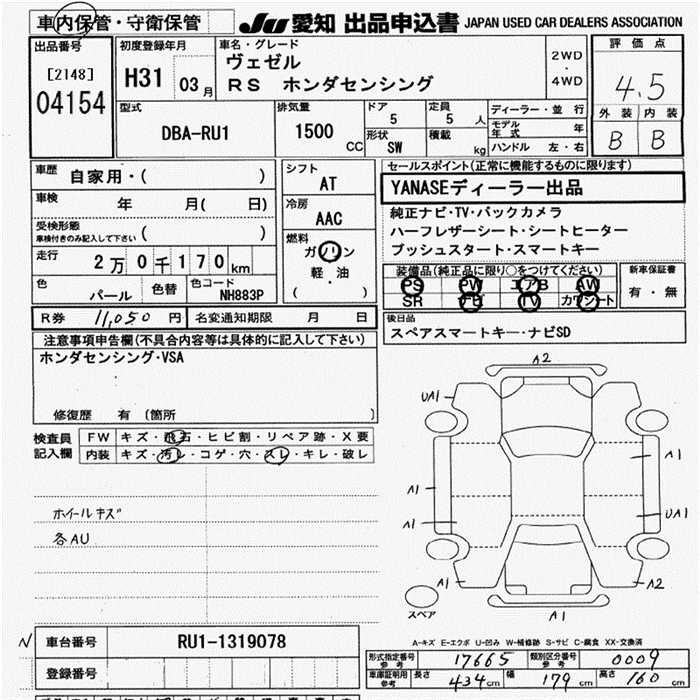 車内保管・守衛保管
JU 愛知 出品申込書 JAPAN USED CAR DEALERS ASSOCIATION
出品番号
[2148]
04154
初度登録年月
H31 03月
車名・グレード
ヴェゼル
RS ホンダセンシング
2WD
・
4WD
評価点
4.5
外装 内装
B B
型式
DBA-RU1
排気量
1500 CC
ドア
5
定員
5 人
形状
SW
積載
kg
ディーラー・並行
モデル年式 年
ハンドル 左・右
車歴
自家用・( )
車検
年 月( 日)
受検形態
車検付きのみ記入して下さい ( )
走行
2万0千170km
色
パール
色替
色コード
NH883P
シフト
AT
冷房
AAC
燃料
ガソリン
軽・油
( )
セールスポイント(正常に機能するものに限ります)
YANASEディーラー出品
純正ナビ・TV・バックカメラ
ハーフレザーシート・シートヒーター
プッシュスタート・スマートキー
装備品(純正品に限り○をつけてください)
PS PW エアB AW
SR ナビ TV カワシート
新車保証書
有・無
R券 11,050 円
名変通知期限 月 日
後日品
スペアスマートキー・ナビSD
注意事項申告欄(不具合内容等は具体的に記入して下さい)
ホンダセンシング・VSA
修復歴 有 (箇所 )
検査員
記入欄
FW キズ・飛石・ヒビ割・リペア跡・X要
内装 キズ・汚レ・コゲ・穴・スレ・キレ・破レ
ホイールキズ
各AU
A2
UA1
A1
A1
A1
UA1
A1
A2
A1
スペア
A-キズ E-エクボ U-凹み W-補修跡 S-サビ C-腐食 XX-交換済
N
車台番号
RU1-1319078
登録番号
形式指定番号
参考
17665
類別区分番号
参考
0009
車庫証明用
参考
長さ 434cm 幅 179cm 高さ 160cm